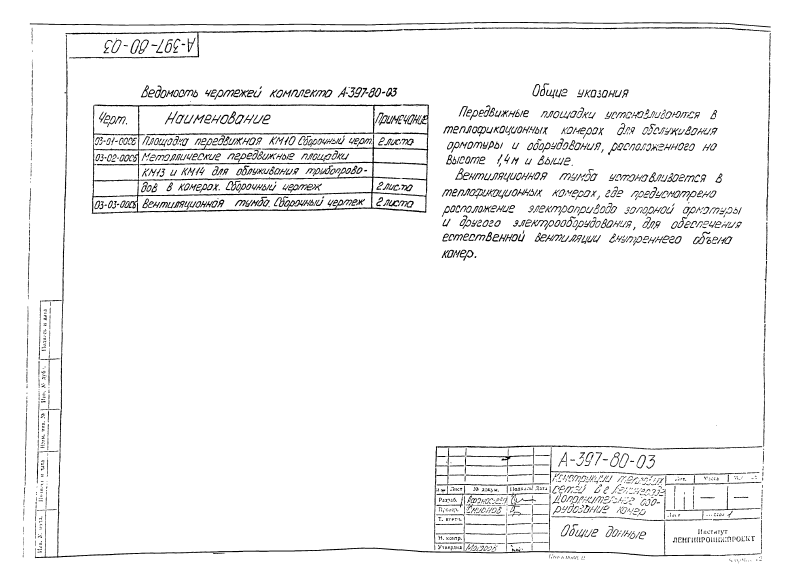 А-397-80-03
Ведомость чертежей комплекта А-397-80-03
Черт. Наименование Примечание
03-01-00СБ Площадка передвижная КМ10 Сборочный черт. 2 листа
03-02-00СБ Металлические передвижные площадки
КМ13 и КМ14 для облуживания трубопрово-
дов в камерах. Сборочный чертеж 2 листа
03-03-00СБ Вентиляционная тумба. Сборочный чертеж 2 листа
Общие указания
Передвижные площадки устанавливаются в
теплофикационных камерах для обслуживания
арматуры и оборудования, расположенного на
высоте 1,4 м и выше.
Вентиляционная тумба устанавливается в
теплофикационных камерах, где предусмотрено
расположение электропривода запорной арматуры
и другого электрооборудования, для обеспечения
естественной вентиляции внутреннего объема
камер.
Подпись и дата
Инв. № дубл.
Взам. инв. №
Подпись и дата
Инв. № подл.
А-397-80-03
Конструкции тепловых
сетей в г. Ленинграде
Дополнительное обо-
рудование камер
Изм Лист № докум. Подпись Дата
Разраб.
Провер.
Т. контр.
Н. контр.
Утвердил
Общие данные
Лит. Масса
Лист
Институт
ЛЕНГИПРОИНЖПРОЕКТ